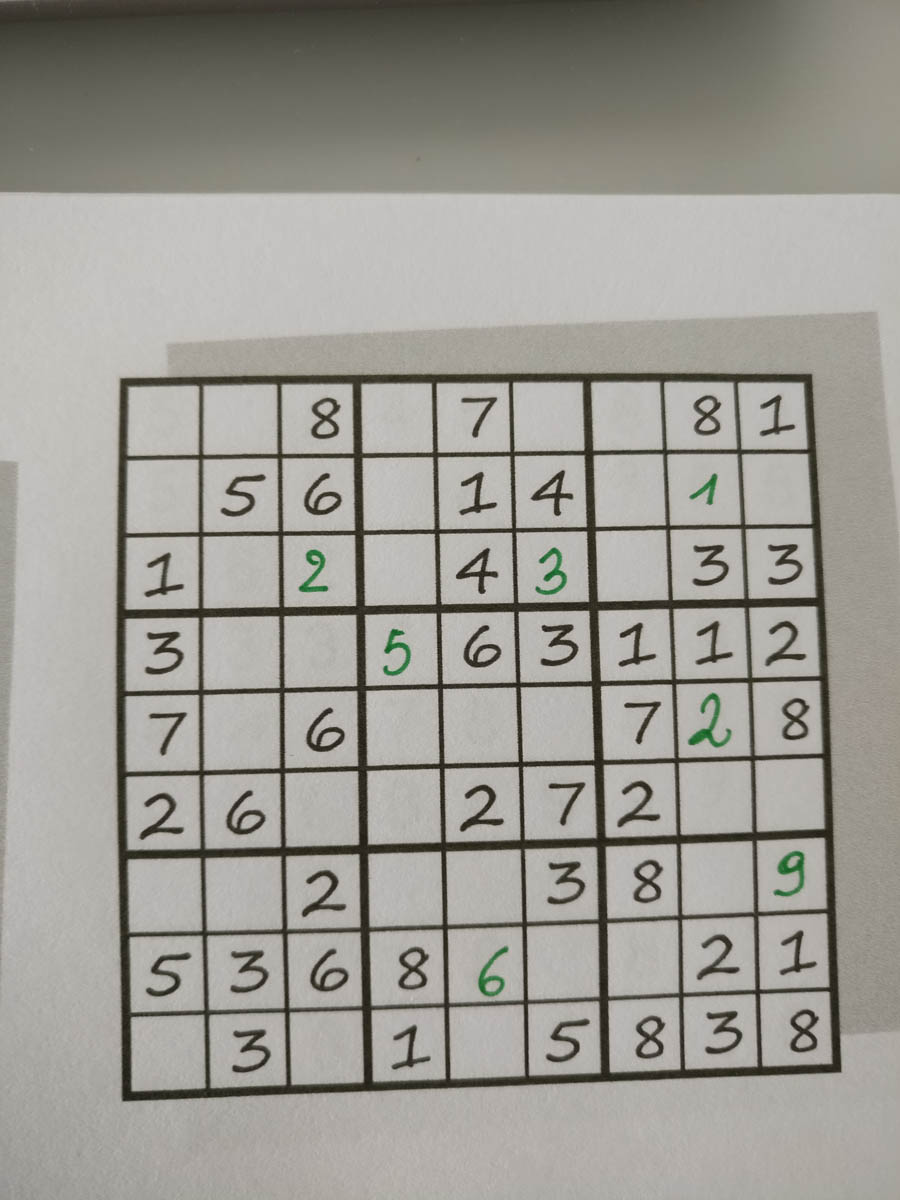 8 7 8 1
5 6 1 4 1
1 2 4 3 3 3
3 5 6 3 1 1 2
7 6 7 2 8
2 6 2 7 2
2 3 8 9
5 3 6 8 6 2 1
3 1 5 8 3 8